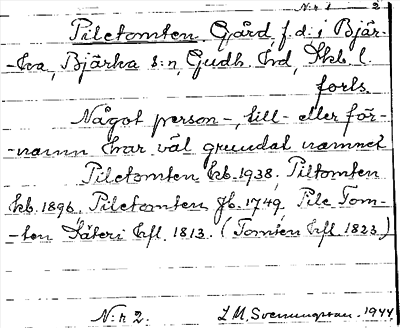 N:r 1 2
Piletomten. Gård, f.d. i Bjär-
-ka, Bjärka s:n, Gudh. hd, Skb. l.
forts.
Något person-, till- eller för-
-namn har väl grundat namnet
Piletomten kb. 1938, Piltomten
kb. 1896. Piletomten jb. 1749, Pile Tom-
-ten Säteri hfl. 1813. (Tomten hfl. 1823)
N:r 2. L.M. Svenungsson. 1944